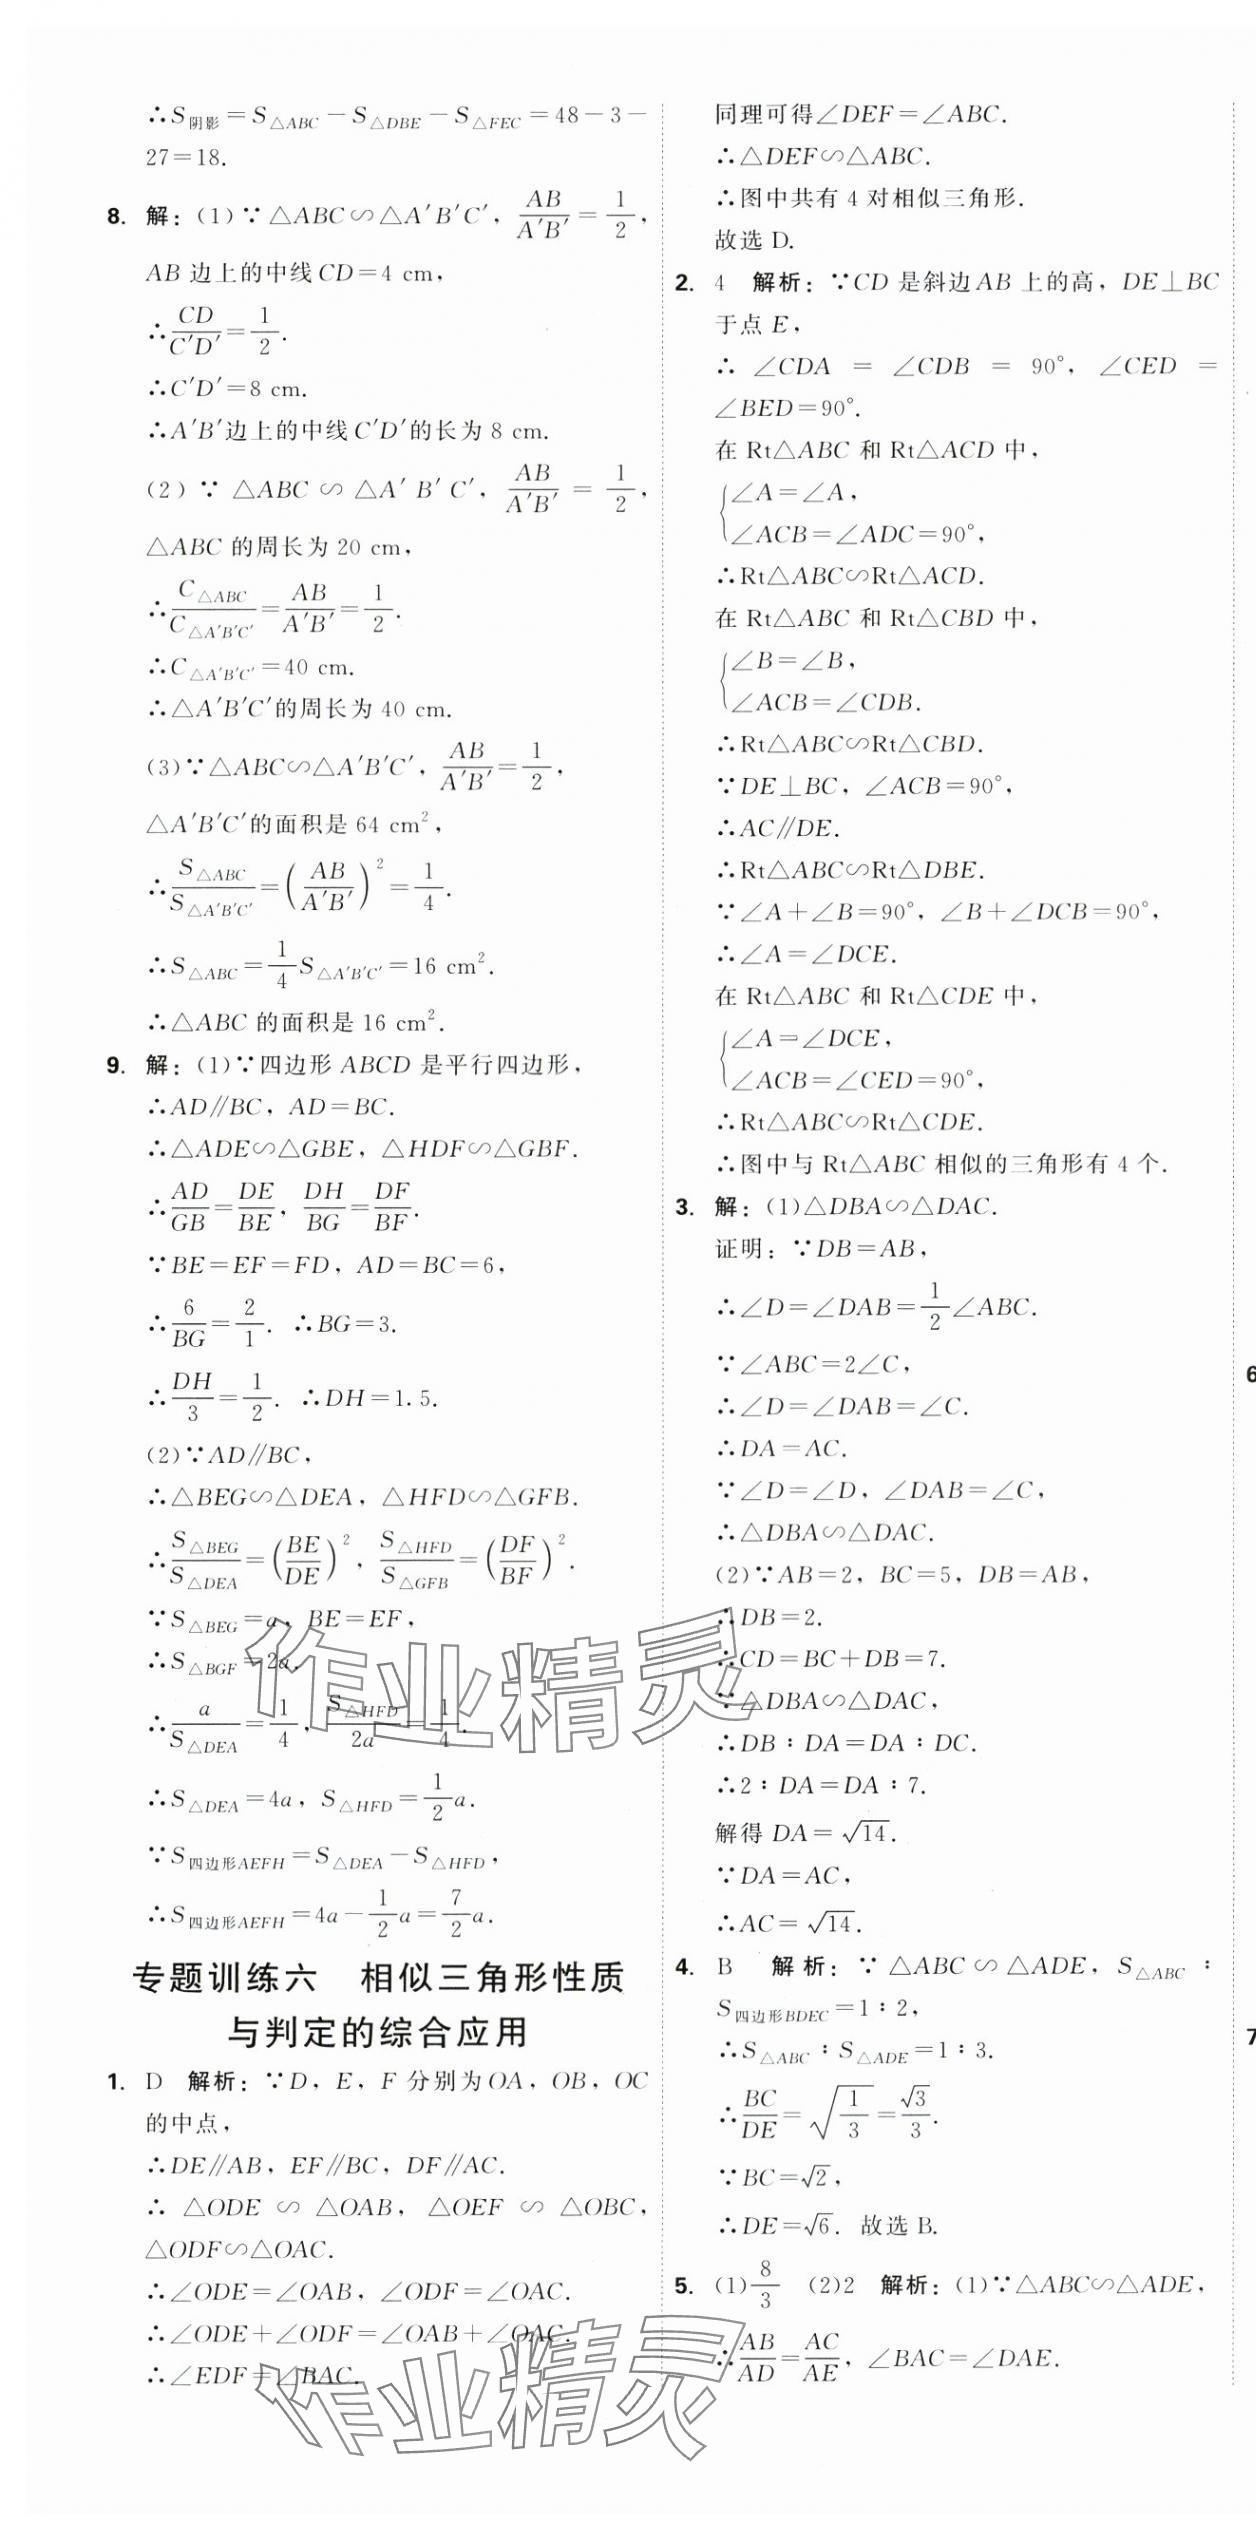 ∴S阴影=S△ABC-S△DBE-S△FEC=48-3-
27=18.
8. 解:(1)∵△ABC∽△A′B′C′, AB/A′B′=1/2,
AB 边上的中线CD=4 cm,
∴CD/C′D′=1/2.
∴C′D′=8 cm.
∴A′B′边上的中线C′D′的长为8 cm.
(2)∵△ABC∽△A′B′C′, AB/A′B′=1/2,
△ABC 的周长为20 cm,
∴C△ABC/C△A′B′C′=AB/A′B′=1/2.
∴C△A′B′C′=40 cm.
∴△A′B′C′的周长为40 cm.
(3)∵△ABC∽△A′B′C′, AB/A′B′=1/2,
△A′B′C′的面积是64 cm²,
∴S△ABC/S△A′B′C′=(AB/A′B′)²=1/4.
∴S△ABC=1/4S△A′B′C′=16 cm².
∴△ABC 的面积是16 cm².
9. 解:(1)∵四边形ABCD是平行四边形,
∴AD∥BC, AD=BC.
∴△ADE∽△GBE, △HDF∽△GBF.
∴AD/GB=DE/BE, DH/BG=DF/BF.
∵BE=EF=FD, AD=BC=6,
∴6/BG=2/1. ∴BG=3.
∴DH/3=1/2. ∴DH=1.5.
(2)∵AD∥BC,
∴△BEG∽△DEA, △HFD∽△GFB.
∴S△BEG/S△DEA=(BE/DE)², S△HFD/S△GFB=(DF/BF)².
∵S△BEG=a, BE=EF,
∴S△BGF=2a.
∴a/S△DEA=1/4, S△HFD/2a=1/4.
∴S△DEA=4a, S△HFD=1/2a.
∵S四边形AEFH=S△DEA-S△HFD,
∴S四边形AEFH=4a-1/2a=7/2a.
专题训练六 相似三角形性质
与判定的综合应用
1. D 解析:∵D, E, F 分别为OA, OB, OC
的中点,
∴DE∥AB, EF∥BC, DF∥AC.
∴△ODE∽△OAB, △OEF∽△OBC,
△ODF∽△OAC.
∴∠ODE=∠OAB, ∠ODF=∠OAC.
∴∠ODE+∠ODF=∠OAB+∠OAC.
∴∠EDF=∠BAC.
同理可得∠DEF=∠ABC.
∴△DEF∽△ABC.
∴图中共有4对相似三角形.
故选D.
2. 4 解析:∵CD是斜边AB上的高, DE⊥BC
于点E,
∴∠CDA=∠CDB=90°, ∠CED=
∠BED=90°.
在Rt△ABC和Rt△ACD中,
∠A=∠A,
∠ACB=∠ADC=90°,
∴Rt△ABC∽Rt△ACD.
在Rt△ABC和Rt△CBD中,
∠B=∠B,
∠ACB=∠CDB.
∴Rt△ABC∽Rt△CBD.
∵DE⊥BC, ∠ACB=90°,
∴AC∥DE.
∴Rt△ABC∽Rt△DBE.
∵∠A+∠B=90°, ∠B+∠DCB=90°,
∴∠A=∠DCE.
在Rt△ABC和Rt△CDE中,
∠A=∠DCE,
∠ACB=∠CED=90°,
∴Rt△ABC∽Rt△CDE.
∴图中与Rt△ABC相似的三角形有4个.
3. 解:(1)△DBA∽△DAC.
证明:∵DB=AB,
∴∠D=∠DAB=1/2∠ABC.
∵∠ABC=2∠C,
∴∠D=∠DAB=∠C.
∴DA=AC.
∵∠D=∠D, ∠DAB=∠C,
∴△DBA∽△DAC.
(2)∵AB=2, BC=5, DB=AB,
∴DB=2.
∴CD=BC+DB=7.
∵△DBA∽△DAC,
∴DB∶DA=DA∶DC.
∴2∶DA=DA∶7.
解得DA=√14.
∵DA=AC,
∴AC=√14.
4. B 解析:∵△ABC∽△ADE, S△ABC∶
S四边形BDEC=1∶2,
∴S△ABC∶S△ADE=1∶3.
∴BC/DE=√(1/3)=√3/3.
∵BC=√2,
∴DE=√6. 故选B.
5. (1)8/3 (2)2 解析:(1)∵△ABC∽△ADE,
∴AB/AD=AC/AE, ∠BAC=∠DAE.
6
7
作业精灵
作业精灵